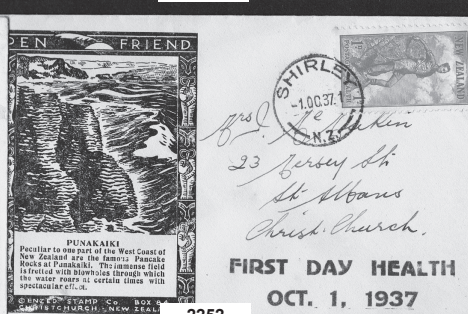 DEN FRIEND
PUNAKAIKI
Peculiar to one part of the West Coast of
New Zealand are the famous Pancake
Rocks at Punakaiki. The immense field
is fretted with blowholes through which
the water roars at certain times with
spectacular effect.
©ENZED STAMP Co. BOX 84
CHRISTCHURCH, NEW ZEAL
SHIRLEY
-1.OC.37.
N.Z.
NEW ZEALAND
Mrs J. Meikin
23 Mersey St.
St Albans
Christ Church.
FIRST DAY HEALTH
OCT. 1, 1937